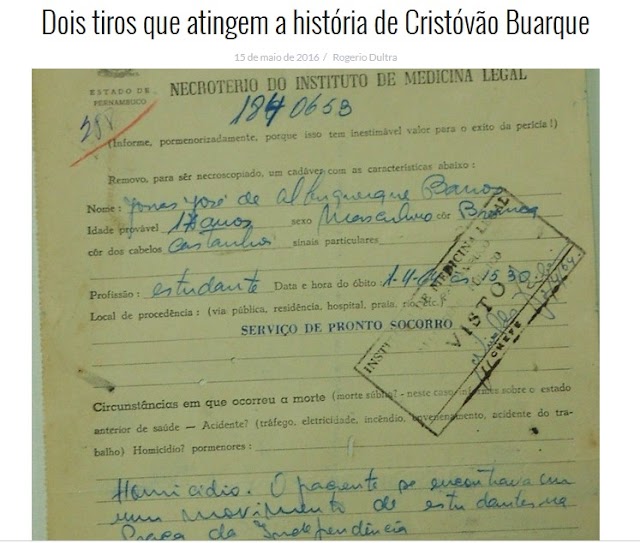 Dois tiros que atingem a história de Cristóvão Buarque
15 de maio de 2016 / Rogerio Dultra
ESTADO DE
PERNAMBUCO
NECROTERIO DO INSTITUTO DE MEDICINA LEGAL
(Informe, pormenorizadamente, porque isso tem inestimável valor para o exito da perícia!)
Removo, para sêr necroscopiado, um cadáver com as características abaixo :
Nome : Jonas José de Albuquerque Barros
Idade provável anos sexo Masculino côr Branca
côr dos cabelos Castanhos sinais particulares
Profissão : estudante Data e hora do óbito
Local de procedência : (via pública, residência, hospital, praia, rio, etc.)
SERVIÇO DE PRONTO SOCORRO
INSTITUTO DE MEDICINA LEGAL
VISTO
CHEFE
Circunstâncias em que ocorreu a morte (morte súbita? - neste caso sobre o estado
anterior de saúde — Acidente? (tráfego, eletricidade, incêndio, envenenamento, acidente do tra-
balho) Homicídio? pormenores :
Homicidio. O paciente se encontrava em
um movimento de estudantes na
Praça da Independência